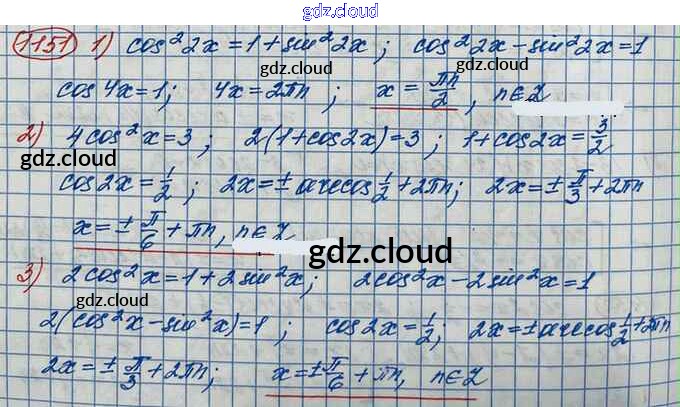 gdz.cloud
1151 1) cos²2x = 1 + sin²2x; cos²2x − sin²2x = 1
gdz.cloud gdz.cloud
cos4x = 1; 4x = 2πn; x = πn/2, n∈Z
2) 4cos²x = 3; 2(1+cos2x) = 3; 1+cos2x = 3/2
gdz.cloud gdz.cloud
cos2x = 1/2; 2x = ± arccos 1/2 + 2πn; 2x = ± π/3 + 2πn
x = ± π/6 + πn, n∈Z
gdz.cloud
3) 2cos²x = 1 + 2sin²x; 2cos²x − 2sin²x = 1
gdz.cloud gdz.cloud
2(cos²x − sin²x) = 1; cos2x = 1/2; 2x = ± arccos 1/2 + 2πn
2x = ± π/3 + 2πn; x = ± π/6 + πn, n∈Z
gdz.cloud